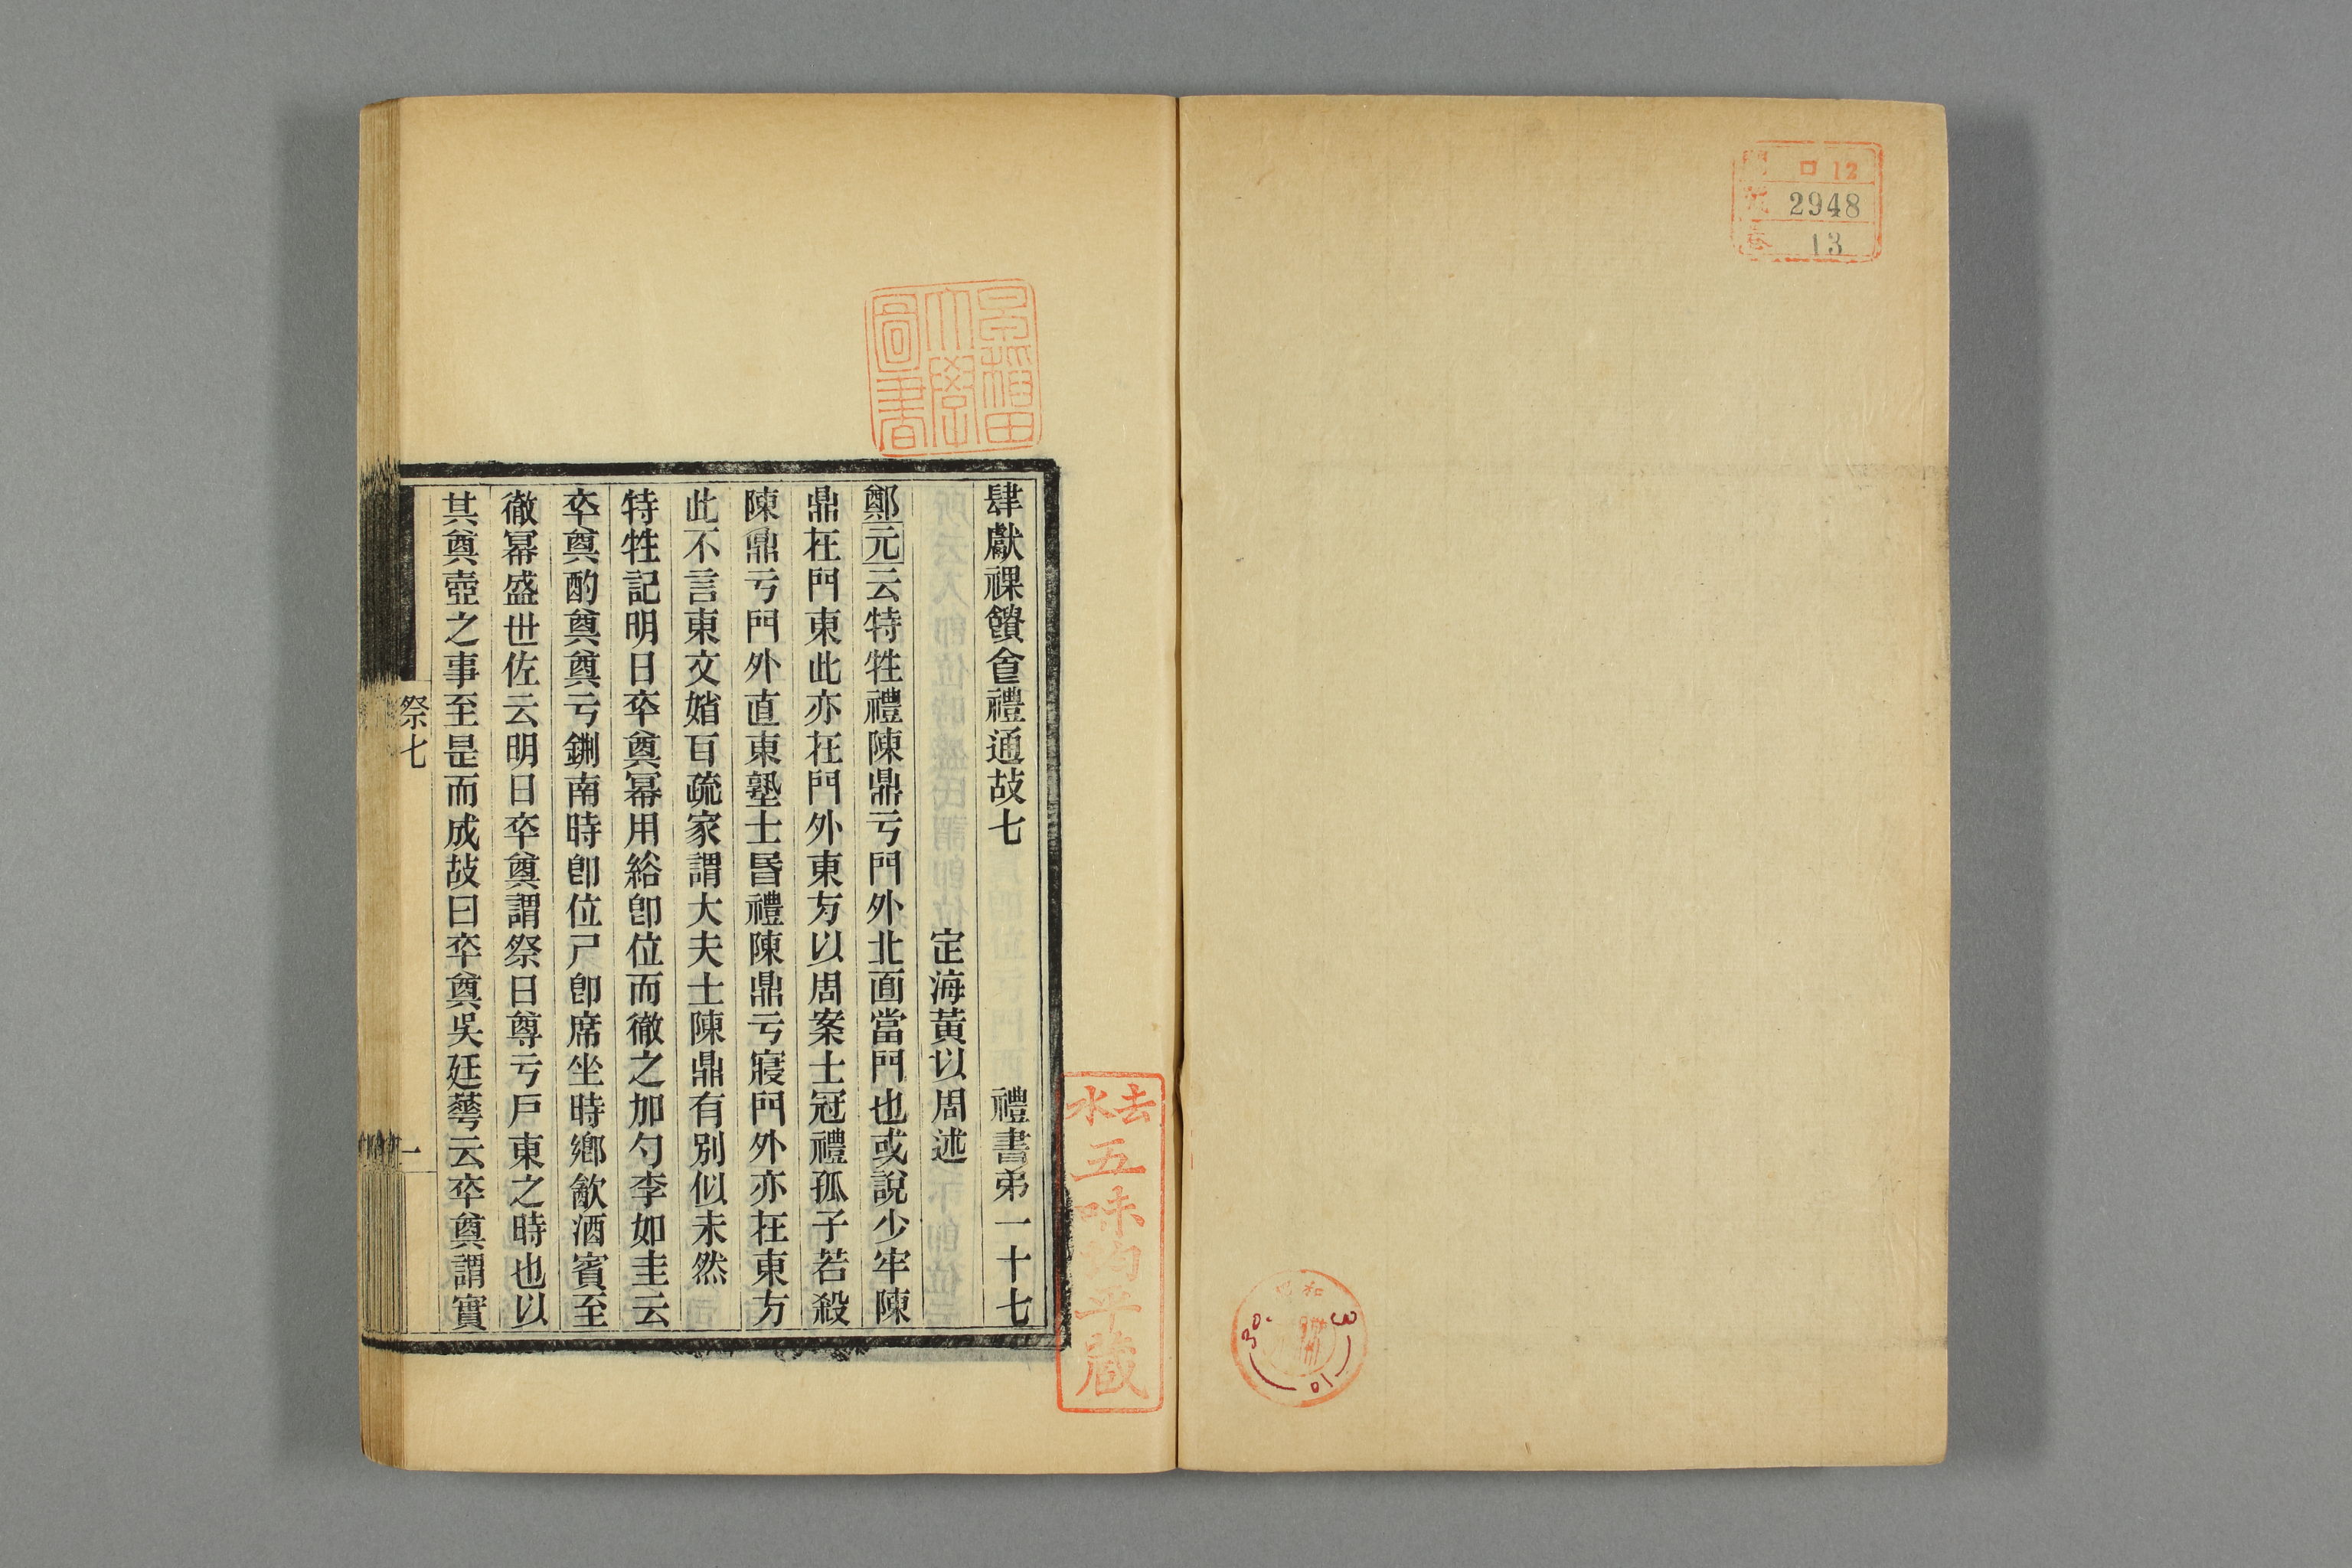 門 ロ12
號 2948
卷 13
昭和
30.
3
10
早稲田
大學
圖書
去水
五味均平藏
肆獻祼饋食禮通故七 禮書弟一十七
定海黃以周述
鄭元云特牲禮陳鼎亏門外北面當門也或說少牢陳
鼎在門東此亦在門外東方以周案士冠禮孤子若殺
陳鼎亏門外直東塾士昏禮陳鼎亏寢門外亦在東方
此不言東文媘百疏家謂大夫士陳鼎有別似未然
特牲記明日卒奠冪用綌卽位而徹之加勺李如圭云
卒奠酌奠奠亏鉶南時卽位尸卽席坐時鄉飮酒賓至
徹冪盛世佐云明日卒奠謂祭日尊亏戶東之時也以
其奠壺之事至是而成故曰卒奠吳廷華云卒奠謂實
祭七
一